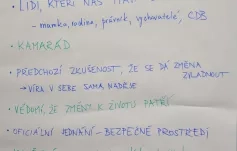 · LIDI, KTEŘÍ NÁS
- mamka, rodina, právník, vychovatelé,
· KAMARÁD
· PŘEDCHOZÍ ZKUŠENOST, ŽE SE DÁ ZMĚNA
ZVLÁDNOUT
→ VÍRA V SEBE SAMA NADĚJE
· VĚDOMÍ, ŽE ZMĚNY K ŽIVOTU PATŘÍ
· OFICIÁLNÍ JEDNÁNÍ - BEZPEČNÉ PROSTŘEDÍ